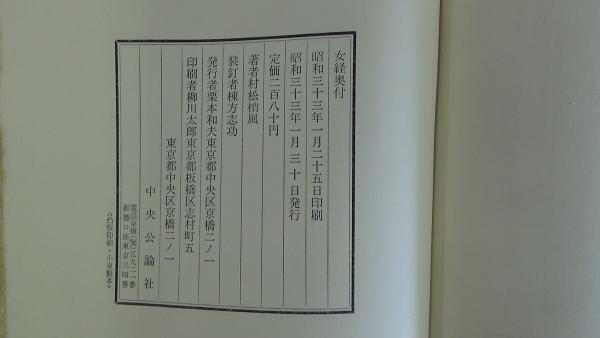 女経奥付
昭和三十三年一月二十五日印刷
昭和三十三年一月三十日発行
定価二百八十円
著者村松梢風
装釘者棟方志功
発行者栗本和夫東京都中央区京橋二ノ一
印刷者柳川太郎東京都板橋区志村町五
東京都中央区京橋二ノ一
中央公論社
電話京橋(56)五九二一番
振替口座東京三四番
(凸版印刷・小泉製本)